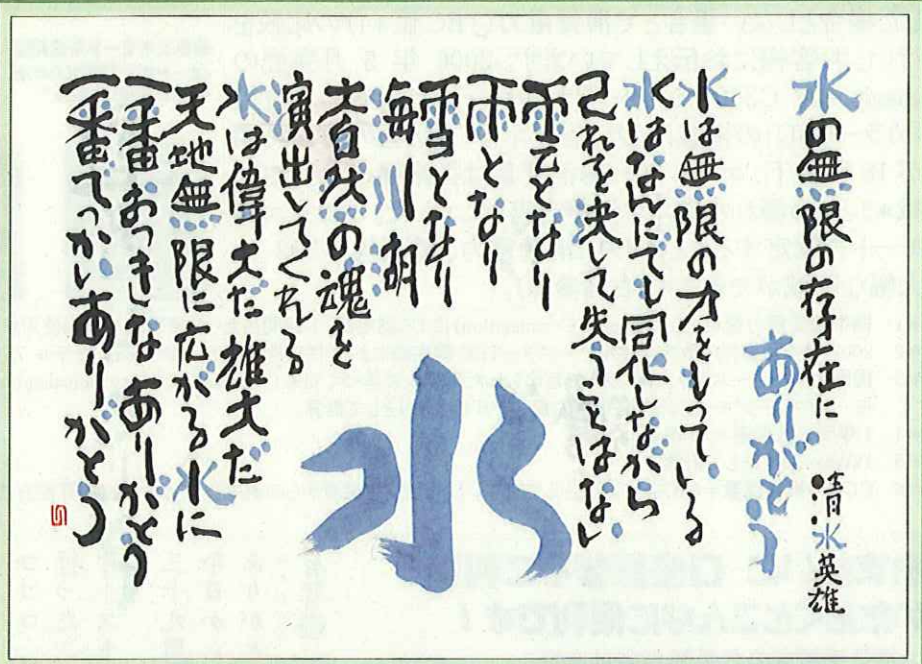 水の無限の存在に
ありがとう
清水英雄
水は無限の力をもっている
水はなんにでも同化しながら
己れを決して失うことはない
雲となり
雨となり
雪となり
海川湖
大自然の魂を
演出してくれる
水は偉大だ雄大だ
天地無限に広がる水に
一番おっきなありがとう
一番でっかいありがとう
水